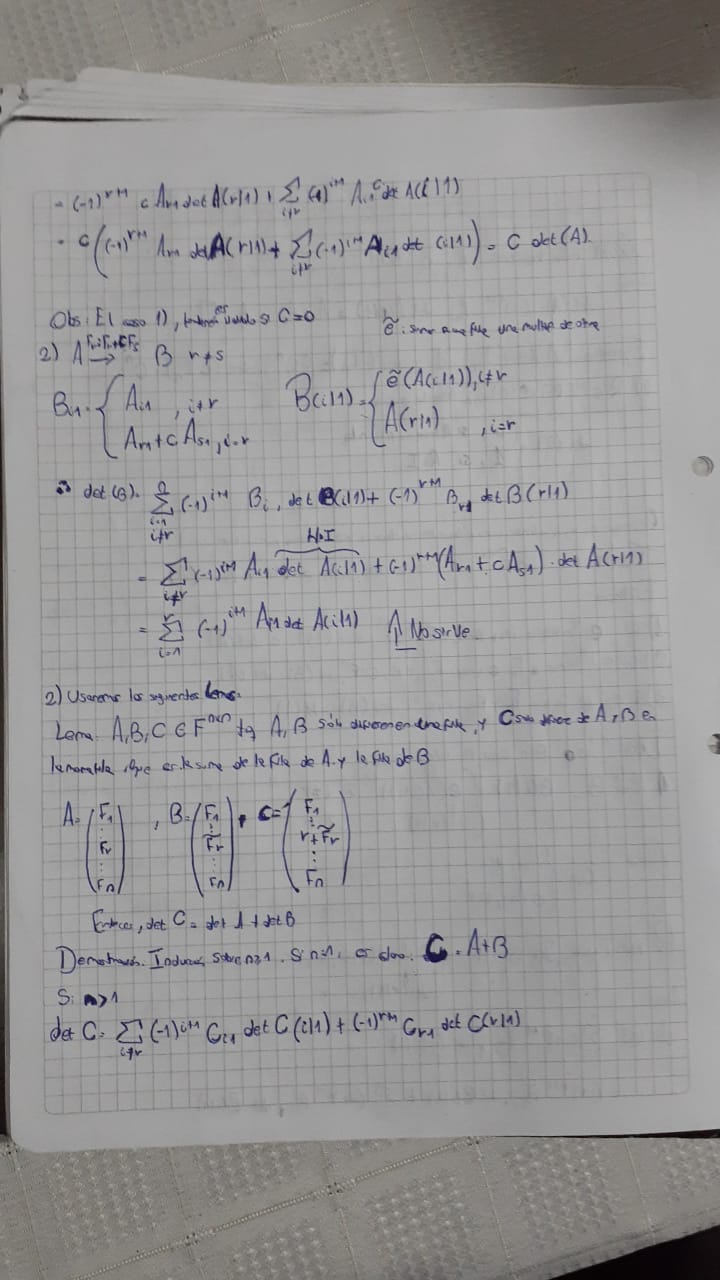 = (-1)^{r+1} c A_{r1} det A(r|1) + Σ_{i≠r} (-1)^{i+1} A_{i1} c det A(i|1)
= c((-1)^{r+1} A_{r1} det A(r|1) + Σ_{i≠r} (-1)^{i+1} A_{i1} det (i|1)) = C det(A).
Obs: El caso 1), también es válido si C=0
ẽ: sime que fue una multip de otra
2) A \xrightarrow{F_r: F_r + cF_s} B r≠s
B_{i1} = { A_{i1}, i≠r
A_{r1} + c A_{s1}, i=r
B(i|1) = { ẽ(A(i|1)), i≠r
A(r|1), i=r
∴ det(B) = Σ_{i=1, i≠r}^{n} (-1)^{i+1} B_{i1} det B(i|1) + (-1)^{r+1} B_{r1} det B(r|1)
H.I
= Σ_{i≠r} (-1)^{i+1} A_{i1} det A(i|1) + (-1)^{r+1} (A_{r1} + c A_{s1}) · det A(r|1)
= Σ_{i=1}^{r} (-1)^{i+1} A_{i1} det A(i|1) ⇑ No sirve
2) Usaremos los siguientes Lema:
Lema: A, B, C ∈ F^{n×n} tq A, B sólo difieren en una fila, y C solo difiere de A, B en
la misma fila, que es la suma de la fila de A y la fila de B
A = (F_1 ⋮ F_r ⋮ F_n), B = (F_1 ⋮ F̃_r ⋮ F_n), C = (F_1 ⋮ r + F̃_r ⋮ F_n)
Entonces, det C = det A + det B
Demostración. Inducción sobre n≥1. Si n=1, es claro. C = A+B
Si n>1
det C = Σ_{i≠r} (-1)^{i+1} C_{i1} det C(i|1) + (-1)^{r+1} C_{r1} det C(r|1)